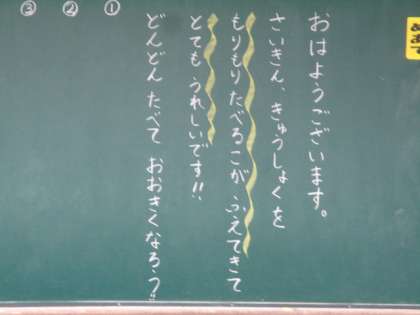 めあて
おはようございます。
さいきん、きゅうしょくを
もりもりたべるこが ふえてきて
とても うれしいです!!
どんどん たべて おおきくなろう!!
①
②
③